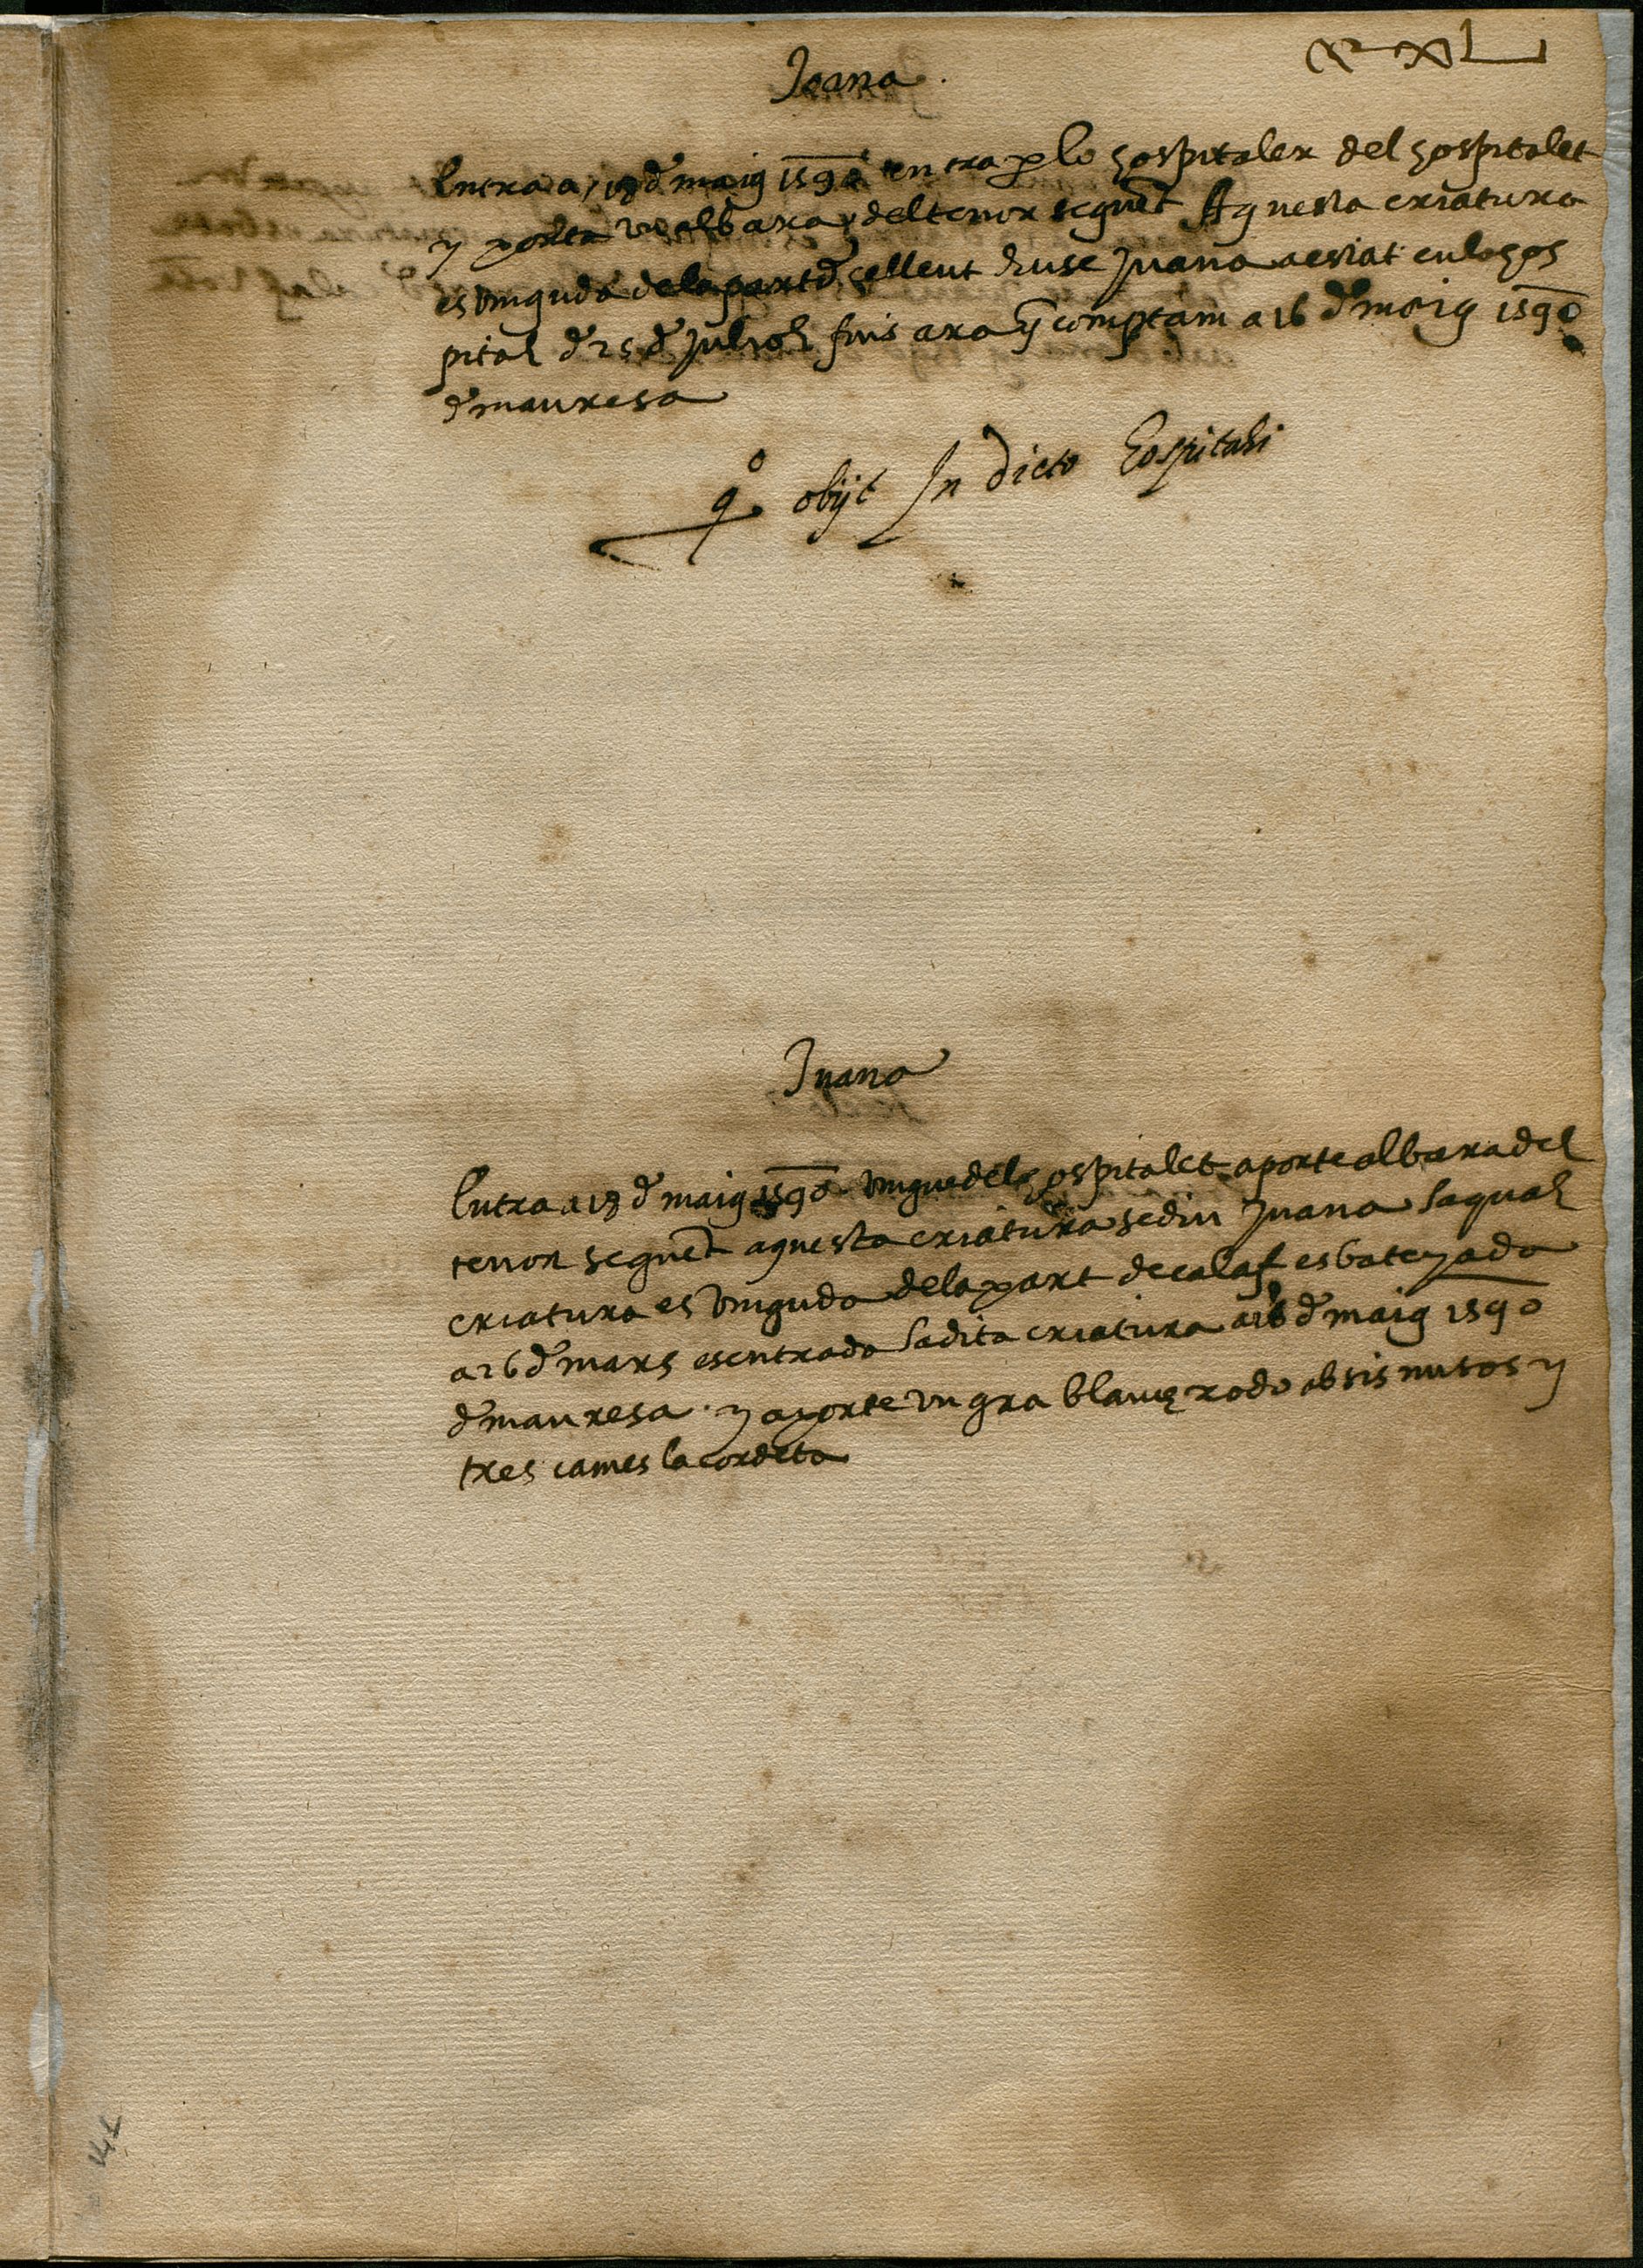 Joana
Entra a 18 d maig 1590 entra p lo hospitaler del hospitalet
y porta un albara del tenor seguēt Aquesta criatura
es vinguda de la part d sellent diuse Juana a estat en lo hos
pital d 25 d Juliol fins ara q̄ comptam a 16 d maig 1590
d manresa
obijt In dicto Hospitali
Juana
Entra a 18 d maig 1590 vingue del hospitalet aporte albara del
tenor seguēt aquesta criatura se diu Juana la qual
criatura es vinguda de la part de calaf es bateyada
a 26 d mars es entrada la dita criatura a 16 d maig 1590
d manresa y aporte un gra blau redo ab sis nusos y
tres cames la cordeta
141